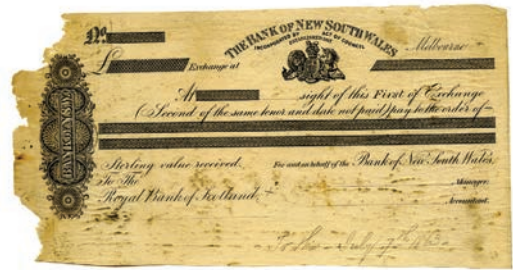 No.
THE BANK OF NEW SOUTH WALES
INCORPORATED BY ACT OF COUNCIL
Melbourne
£ Exchange at
At sight of this First of Exchange
(Second of the same tenor and date not paid) pay to the order of
Sterling value received.
For and on behalf of the Bank of New South Wales,
To The
Manager.
Royal Bank of Scotland,
Accountant.
July